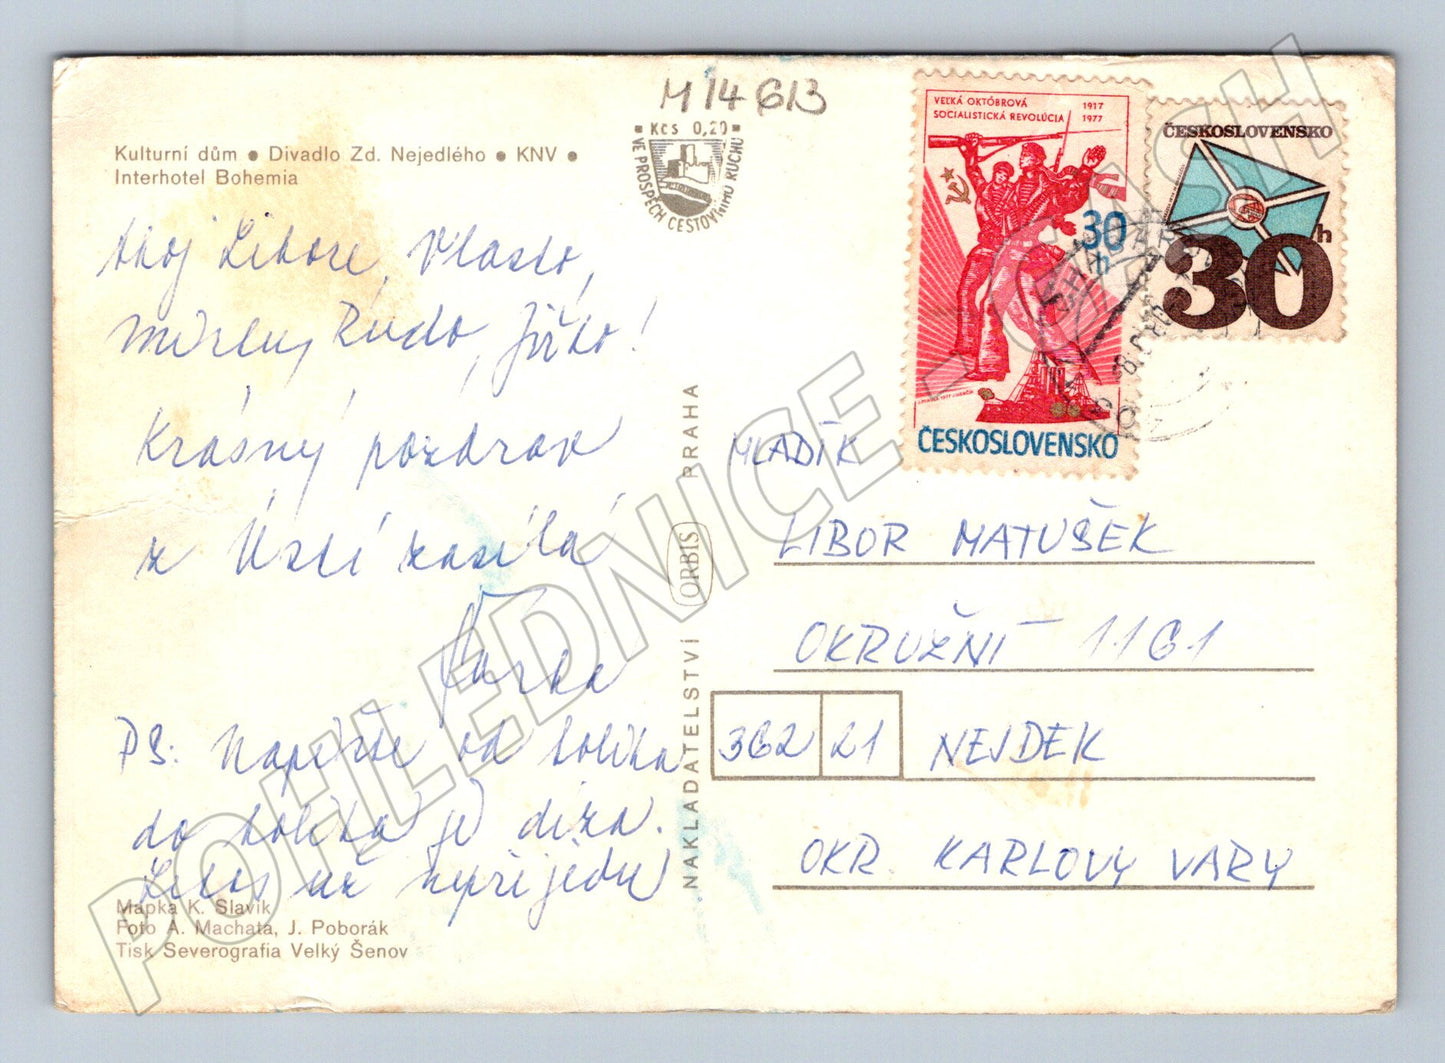 M14613
Kčs 0,20
VE PROSPĚCH CESTOVNÍMU RUCHU
Kulturní dům ● Divadlo Zd. Nejedlého ● KNV ●
Interhotel Bohemia
Ahoj Libore, Vlasto,
Mirku, Rudo, Jirko!
Krásný pozdrav
z Ústí zasílá
Jarka
PS: Napište od kolika
do kolika je díra.
Letos už nepřijedu
Mapka K. Slavík
Foto A. Machata, J. Poborák
Tisk Severografia Velký Šenov
NAKLADATELSTVÍ ORBIS PRAHA
VEĽKÁ OKTÓBROVÁ
SOCIALISTICKÁ REVOLÚCIA
1917
1977
30 h
ČESKOSLOVENSKO
ČESKOSLOVENSKO
30 h
MLADÍK
LIBOR MATUŠEK
OKRUŽNÍ 1161
362 21 NEJDEK
OKR. KARLOVY VARY
POHLEDNICE - CASH